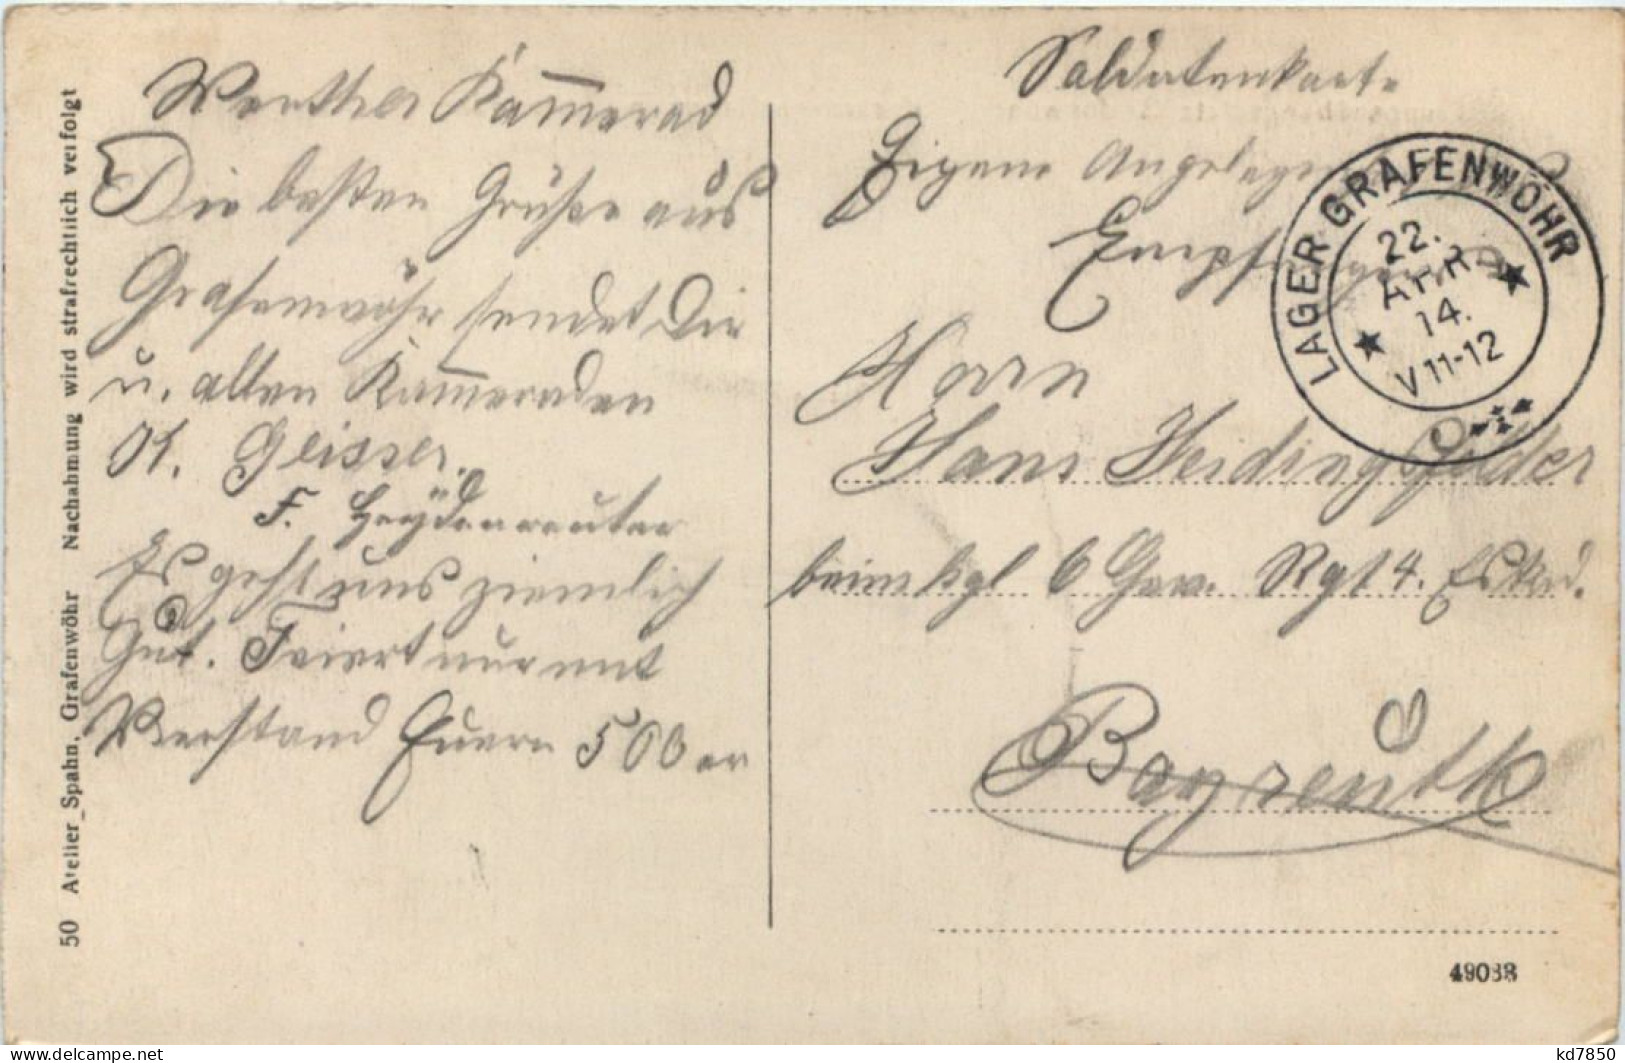 Werther Kamerad
Die besten Grüße aus
Grafenwöhr sendet Dir
u. allen Kameraden
K. Geisser.
F. Heydenreuter
Es geht uns ziemlich
Gut. Feiert nur mit
Verstand Euern 500er
Soldatenkarte
Eigene Angelegenheit des
Empfängers
Herrn
Hans Heidingsfelder
beim kgl 6 Chev. Rgt 4. Eskd.
Bayreuth
LAGER GRAFENWÖHR
22.
APR
14.
V 11-12
50 Atelier Spahn, Grafenwöhr Nachahmung wird strafrechtlich verfolgt
49038
kd7850